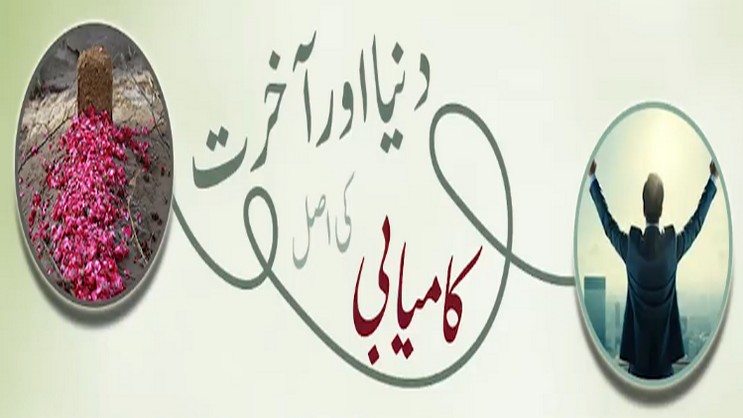 دنیا اور آخرت
کی اصل
کامیابی